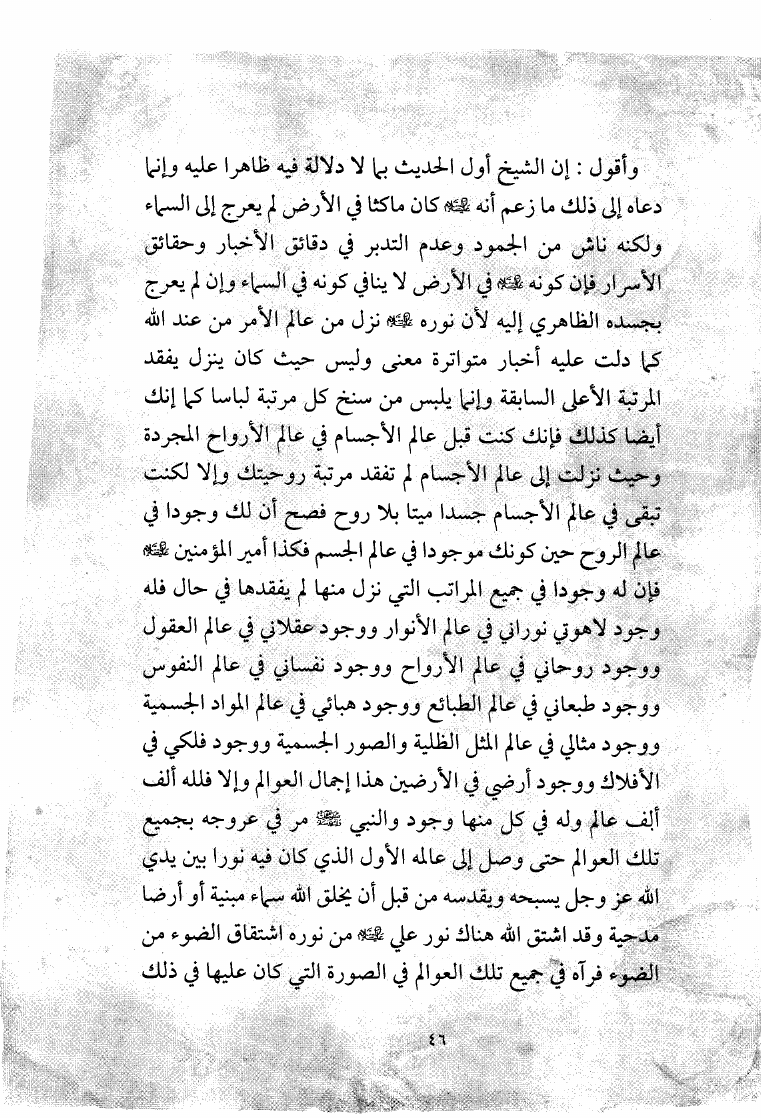 وأقول : إن الشيخ أول الحديث بما لا دلالة فيه ظاهرا عليه وإنما
دعاه إلى ذلك ما زعم أنه ﷺ كان ماكثا في الأرض لم يعرج إلى السماء
ولكنه ناش من الجمود وعدم التدبر في دقائق الأخبار وحقائق
الأسرار فإن كونه ﷺ في الأرض لا ينافي كونه في السماء وإن لم يعرج
بجسده الظاهري إليه لأن نوره ﷺ نزل من عالم الأمر من عند الله
كما دلت عليه أخبار متواترة معنى وليس حيث كان ينزل يفقد
المرتبة الأعلى السابقة وإنما يلبس من سنخ كل مرتبة لباسا كما إنك
أيضا كذلك فإنك كنت قبل عالم الأجسام في عالم الأرواح المجردة
وحيث نزلت إلى عالم الأجسام لم تفقد مرتبة روحيتك وإلا لكنت
تبقى في عالم الأجسام جسدا ميتا بلا روح فصح أن لك وجودا في
عالم الروح حين كونك موجودا في عالم الجسم فكذا أمير المؤمنين ﷺ
فإن له وجودا في جميع المراتب التي نزل منها لم يفقدها في حال فله
وجود لاهوتي نوراني في عالم الأنوار ووجود عقلاني في عالم العقول
ووجود روحاني في عالم الأرواح ووجود نفساني في عالم النفوس
ووجود طبعاني في عالم الطبائع ووجود هبائي في عالم المواد الجسمية
ووجود مثالي في عالم المثل الظلية والصور الجسمية ووجود فلكي في
الأفلاك ووجود أرضي في الأرضين هذا إجمال العوالم وإلا فلله ألف
ألف عالم وله في كل منها وجود والنبي ﷺ مر في عروجه بجميع
تلك العوالم حتى وصل إلى عالمه الأول الذي كان فيه نورا بين يدي
الله عز وجل يسبحه ويقدسه من قبل أن يخلق الله سماء مبنية أو أرضا
مدحية وقد اشتق الله هناك نور علي ﷺ من نوره اشتقاق الضوء من
الضوء فرآه في جميع تلك العوالم في الصورة التي كان عليها في ذلك
٤٦